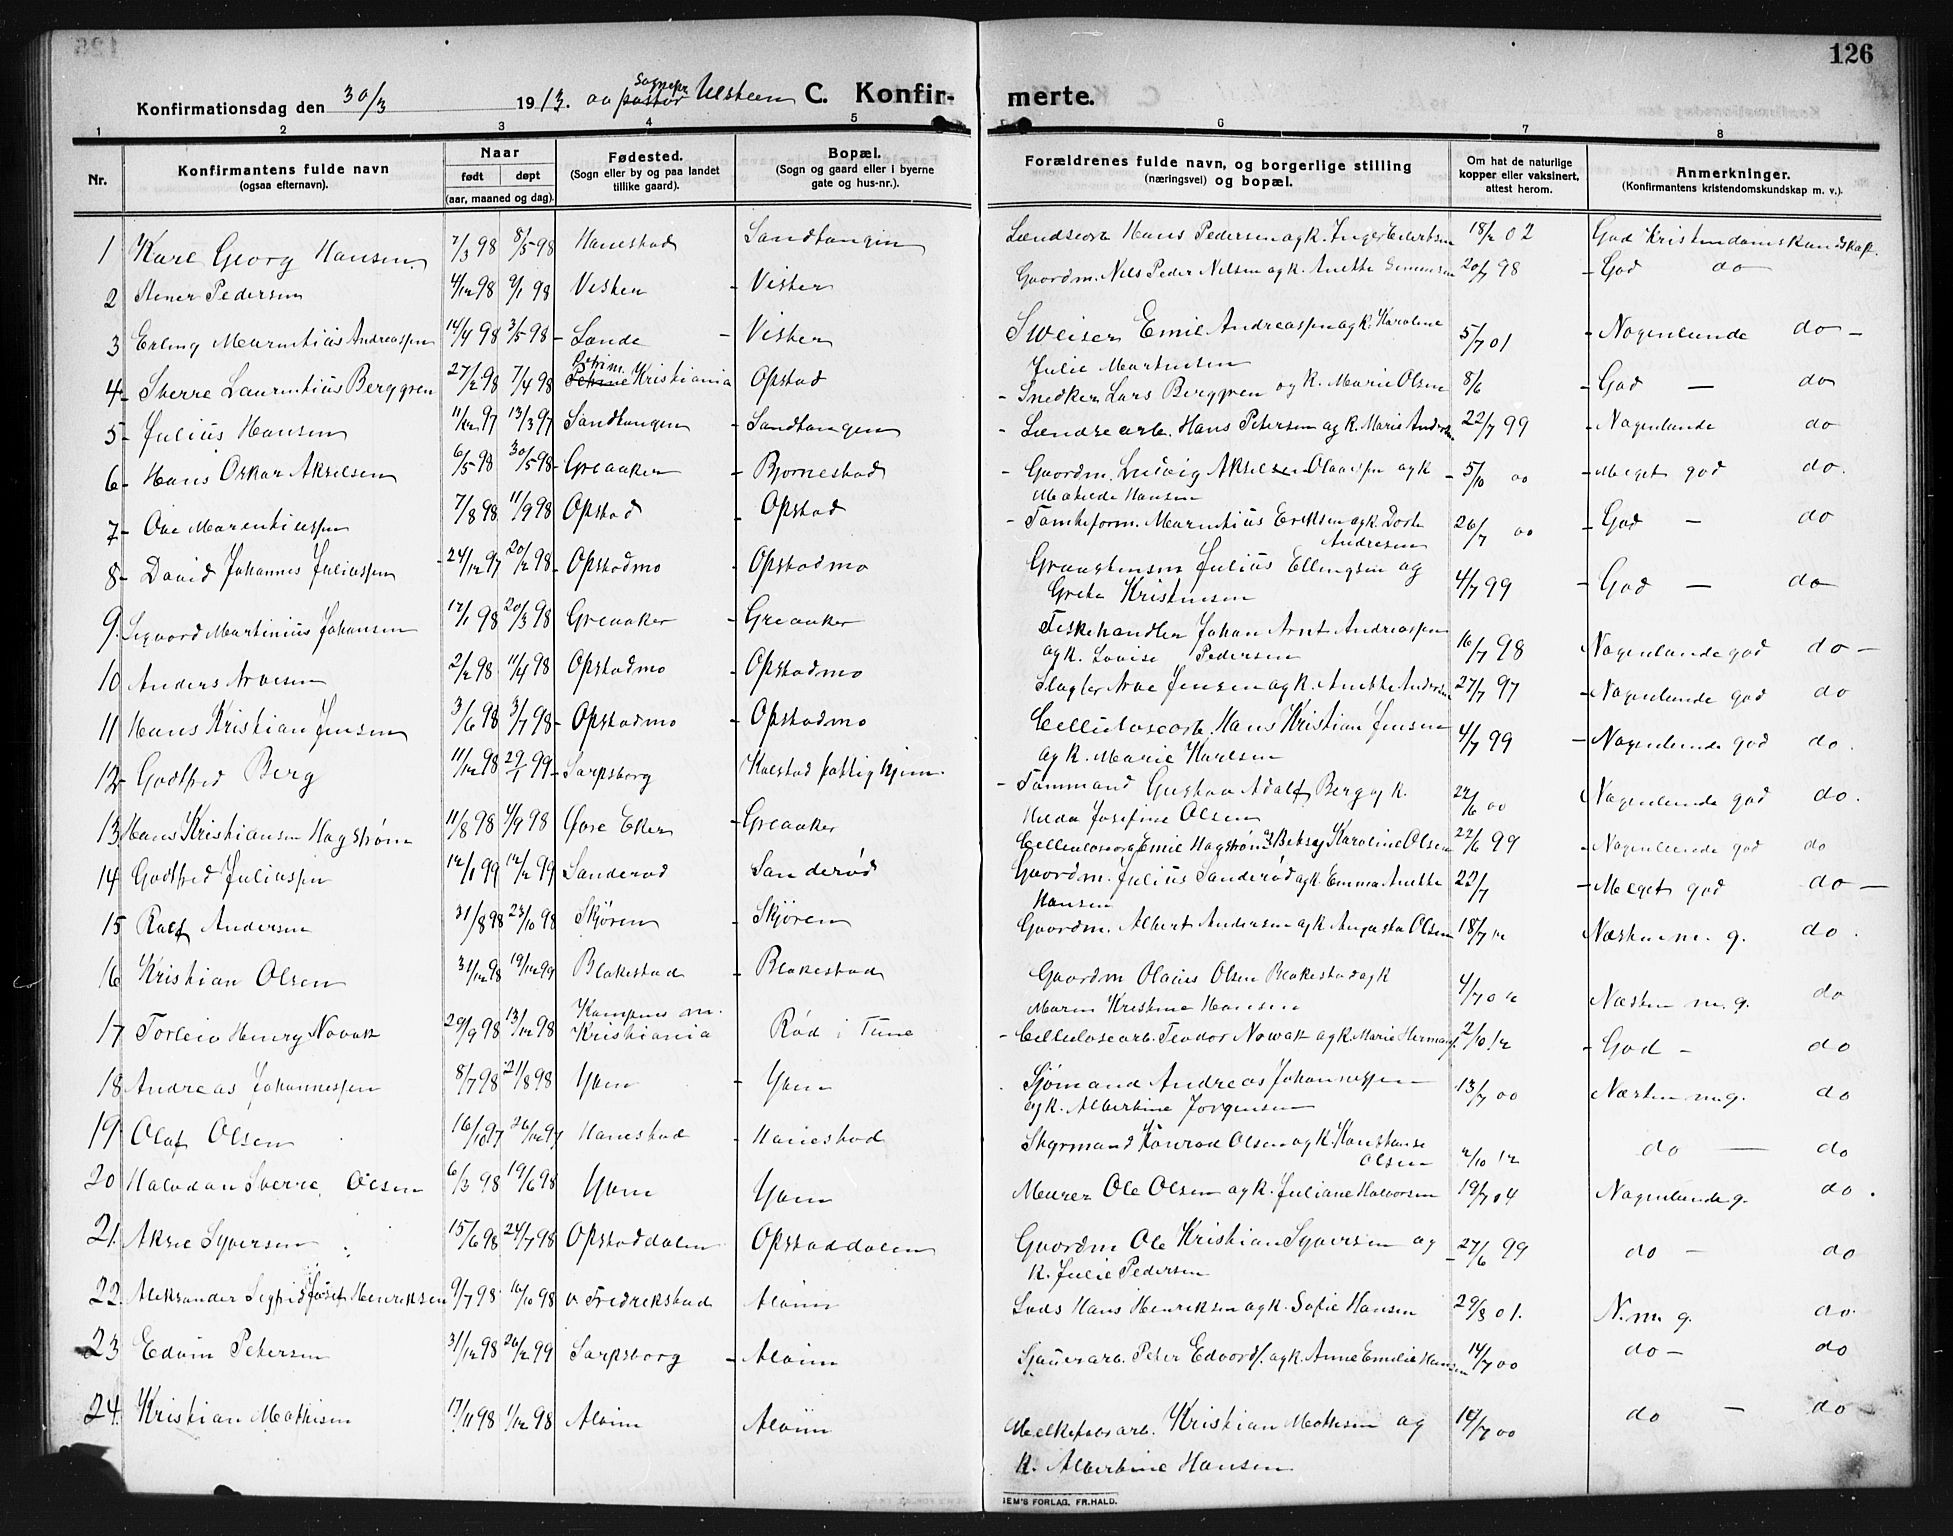 126
Konfirmationsdag den 30/3 1913. av sognepr. pastor Ulsteen C. Konfirmerte.
1 2 3 4 5 6 7 8
Nr. Konfirmantens fulde navn (ogsaa efternavn). Naar født døpt (aar, maaned og dag). Fødested. (Sogn eller by og paa landet tillike gaard). Bopæl. (Sogn og gaard eller i byerne gate og hus-nr.). Forældrenes fulde navn, og borgerlige stilling (næringsvei) og bopæl. Om hat de naturlige kopper eller vaksinert, attest herom. Anmerkninger. (Konfirmantens kristendomskundskap m. v.).
1 Karl Georg Hansen 7/3 98 8/5 98 Hanestad Sandtangen Landsearb Hans Pedersen og k. Inger 18/2 02 God Kristendomskundskap.
2 Stener Pedersen 4/12 98 9/1 98 Visten - Visten Gaardm. Nils Peder Nilsen og k. Anette Simensen 20/7 98 - God do
3 Erling Marentius Andreassen 14/4 98 3/5 98 - Sande - Visten Sveiser Emil Andreassen og k. Karoline 5/7 01 - Nogenlunde do -
Julie Martinsen
4 - Sverre Laurentius Berggren 27/2 98 7/4 98 Kristiania Opstad - Snedker Lars Berggren og k. Marie Olsen 8/6 - God - do
5 - Julius Hansen 11/12 97 13/3 97 Sandtangen - Sandtangen - Landse arb. Hans Petersen og k. Marie 22/7 99 - Nogenlunde do
6 - Hans Oskar Akselsen 6/5 98 30/5 98 - Greaaker - Bjørnestad - Gaardm. Ludvig Akselsen og k 5/10 00 - Meget god do.
Matilde Hansen
7 - Ove Marentiussen 7/8 98 11/9 98 Opstad - Opstad - Tomteform. Marentius Eriksen og k. Dorte 26/7 00 - God - do
Andresen
8 - David Johannes Juliussen - 24/12 97 20/2 98 - Opstadmo - Opstadmo Julius Ellingsen og 4/7 99 - God - do
Grete Kristensen
9. Sigvard Martinius Johansen 17/1 98 20/3 98 Greaaker - Greaaker Fiskehandler Johan Arnt Andreassen 16/7 98 Nogenlunde god do -
og k. Lovise Pedersen
10 Anders Arvesen 2/2 98 11/4 98 Opstadmo - Opstadmo Slagter Arve Jensen og k. Anette Andersen 27/7 97 - Nogenlunde god do
11 Hans Kristian Jensen 3/6 98 3/7 98 - Opstadmo - Opstadmo Cellulosearb. Hans Kristian Jensen 4/7 99 - Nogenlunde god do.
og k. Marie Karlsen
12 - Godtfred Berg 11/12 98 29/1 99 - Sarpsborg Kalstad fattighjem. - Tømmand Gustav Adolf Berg og k. 22/6 00 Nogenlunde god do.
Hilda Josefine Olsen
13 Hans Kristiansen Hagstrøm 11/8 98 4/9 98 Øvre Eker - Greaaker Cellulosearb Emil Hagstrøm og Betsey Karoline Olsen 22/6 99 - Nogenlunde god do
14 Godtfred Juliussen 12/1 99 12/2 99 Sanderød Sanderød Gaardm. Julius Sanderød og k. Emma Anette 22/7 - Meget god do -
Hansen
15 Ralf Andersen 31/8 98 23/10 98 Skjøren - Skjøren Gaardm. Albert Andersen og k. Augusta Olsen 18/7 12 Næsten m. g. do.
16 Kristian Olsen 31/12 98 19/12 99 Blakestad - Blakestad Gaardm Olaus Olsen Blakestad og k 4/7 02 Næsten m. g. do
Maren Kristine Hansen
17 Torleiv Henry Novak 29/9 98 13/12 98 Kampens m. Kristiania Rød i Tune - Cellulosearb. Teodor Nowak og k. Marie 2/10 12 - God - do
18 Andreas Johannessen 8/7 98 21/8 98 Yven - Yven Sjømand Andreas Johannessen 13/7 00 Næsten m.g. do
og k. Albertine Jørgensen
19 Olaf Olsen 16/10 97 26/12 97 Hanestad - Hanestad Styrmand Konrad Olsen og k. Konstanse 2/10 12 do - do
Olsen
20 Halvdan Sverre Olsen 6/3 98 19/6 98 Yven Yven Murer Ole Olsen og k. Juliane Halvorsen 19/7 04 Nogenlunde g. do.
21. Aksel Syversen 15/6 98 24/7 98 Opstaddalen Opstaddalen Gaardm Ole Kristian Syversen og 27/6 99 do - do
k. Julie Pedersen
22. Aleksander Sigfrid Josef Henriksen 9/7 98 16/10 98 v Fredrikstad Alvim Lods Hans Henriksen og k. Sofie Hansen 29/8 01. N. m. g. do
23 Edvin Petersen 31/12 98 26/2 99 Sarpsborg - Alvim Sjauerarb. Peter Edvards. og k. Anne Emilie Hansen 14/7 00 do - do
24. Kristian Mathisen 17/11 98 1/12 98 Alvim Alvim Kristian Mathisen og 14/7 00 do - do
k. Albertine Hansen
IEM'S FORLAG, FR.HALD.